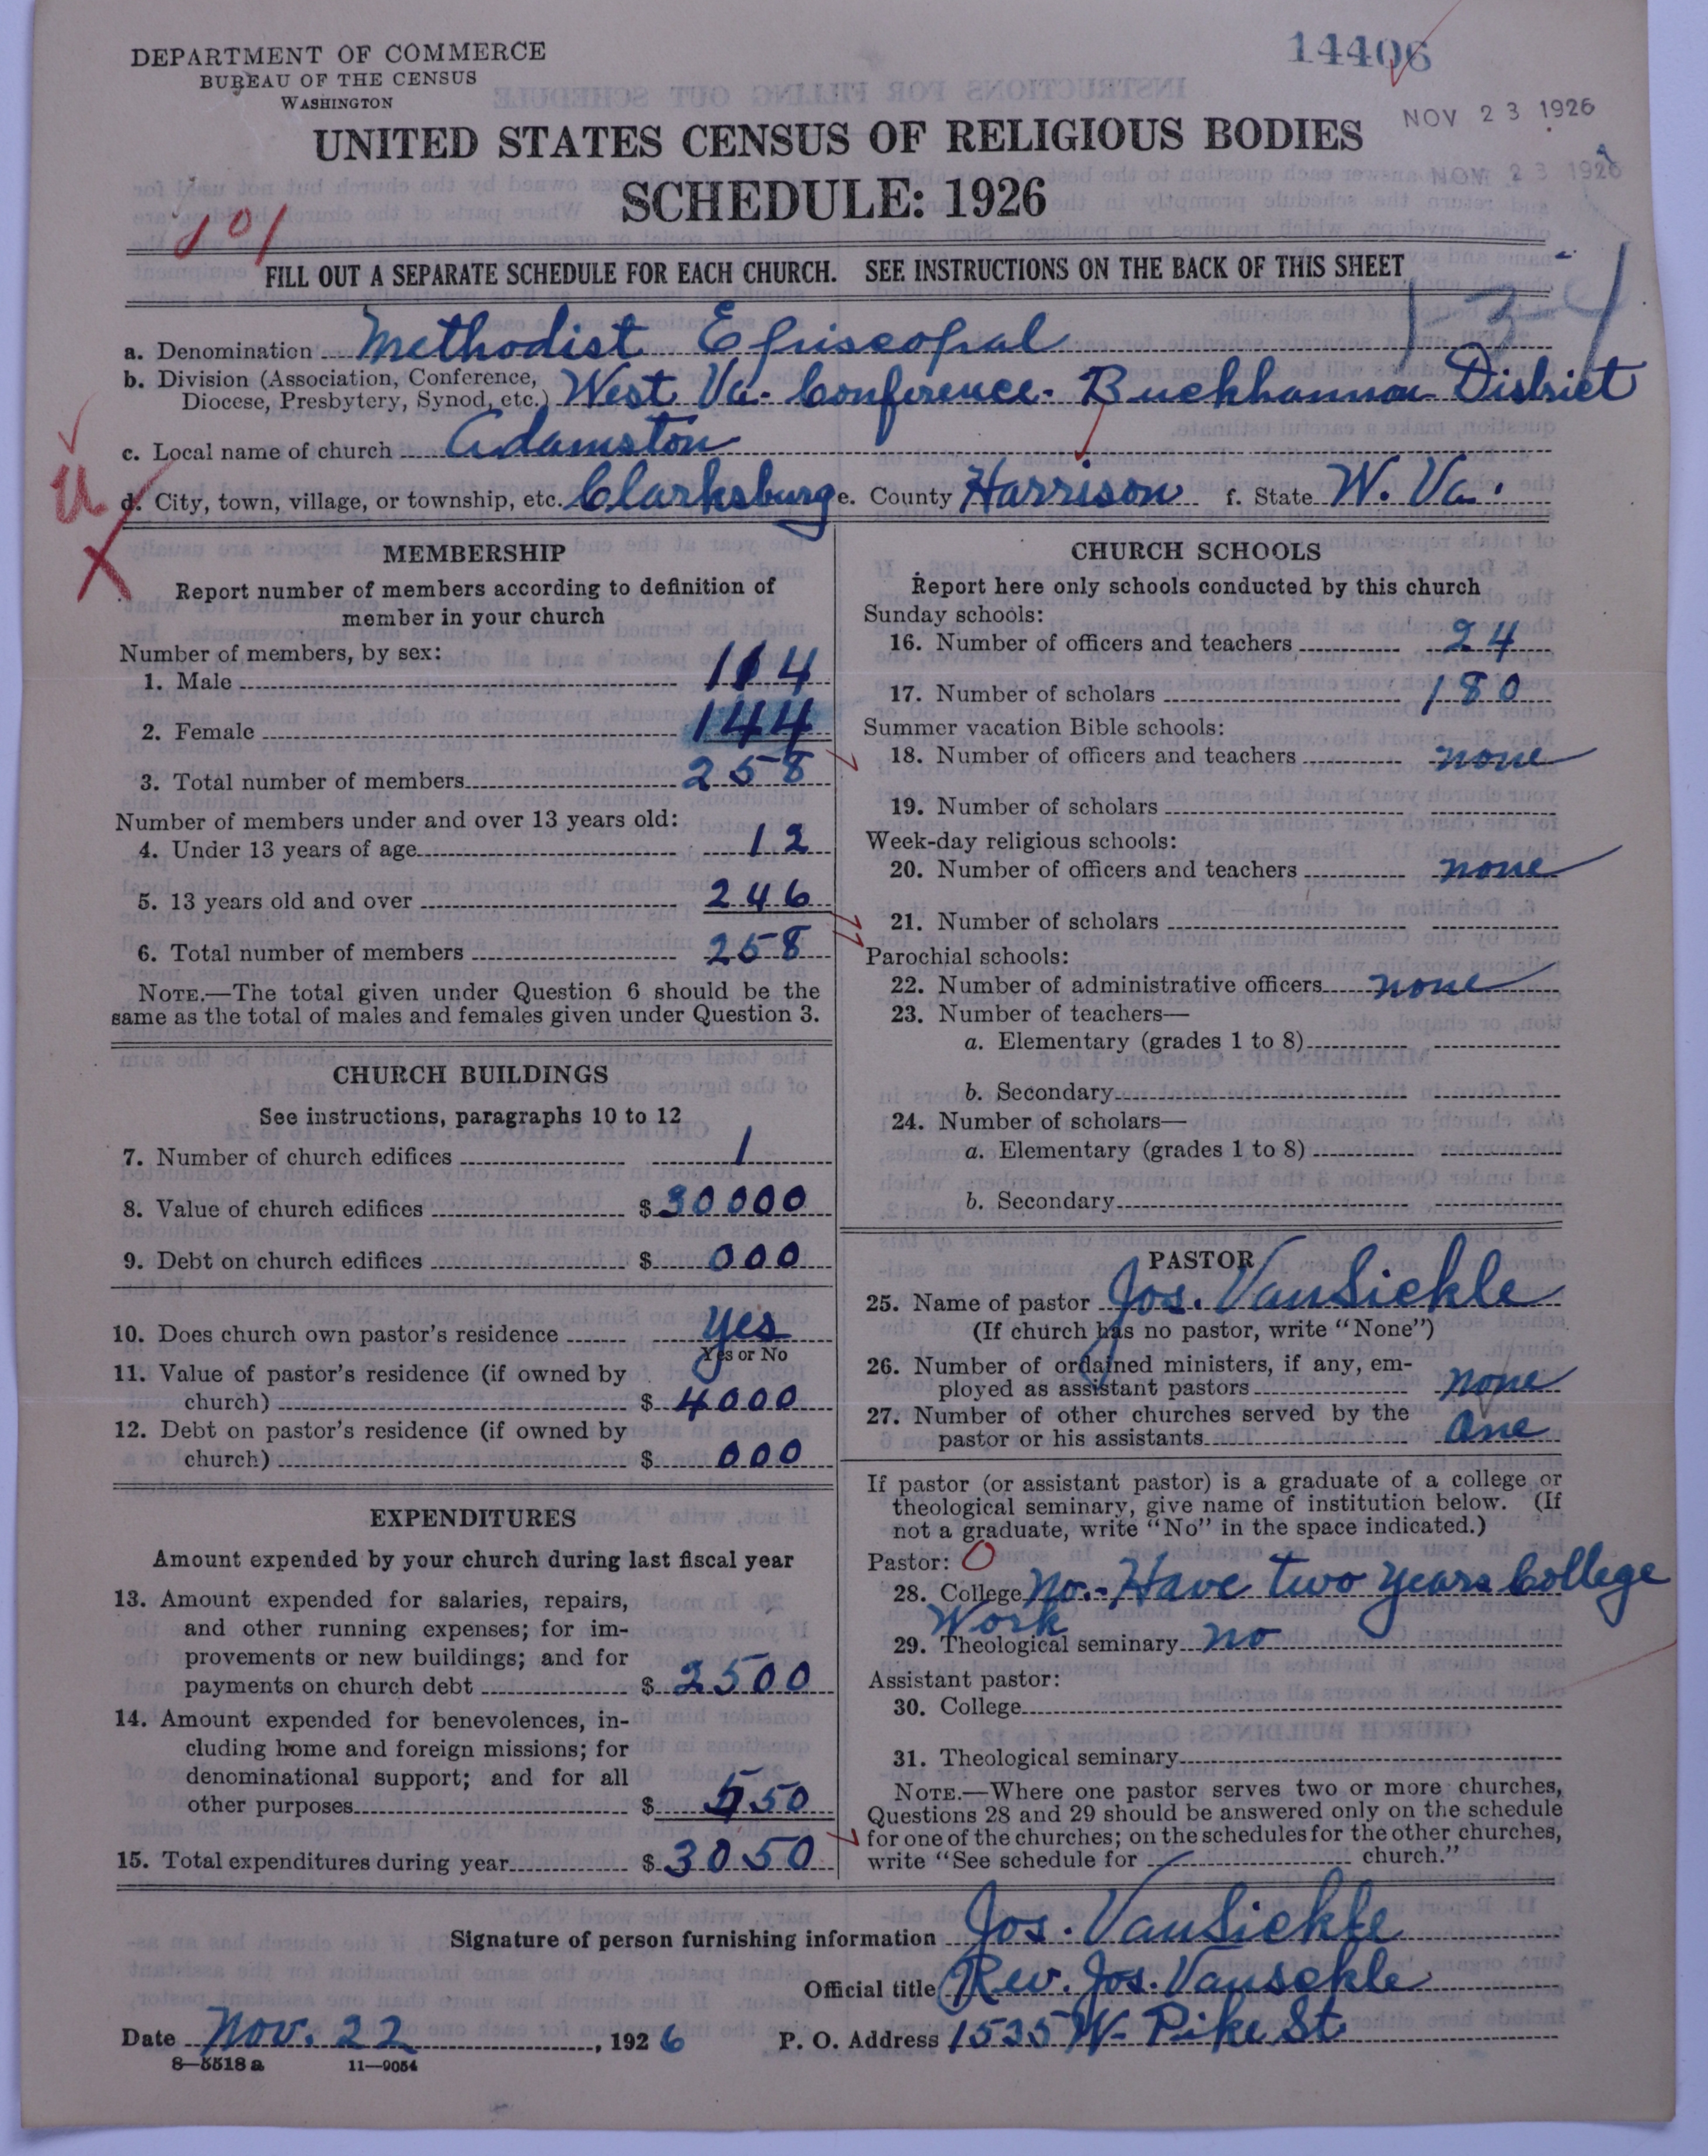 DEPARTMENT OF COMMERCE
BUREAU OF THE CENSUS
WASHINGTON
14406
NOV 23 1926
NOV 23 1926
UNITED STATES CENSUS OF RELIGIOUS BODIES
SCHEDULE: 1926
101
FILL OUT A SEPARATE SCHEDULE FOR EACH CHURCH. SEE INSTRUCTIONS ON THE BACK OF THIS SHEET
a. Denomination Methodist Episcopal
b. Division (Association, Conference, Diocese, Presbytery, Synod, etc.) West Va. Conference - Buckhannon District
c. Local name of church Adamston
d. City, town, village, or township, etc. Clarksburg e. County Harrison f. State W. Va.
MEMBERSHIP
Report number of members according to definition of
member in your church
Number of members, by sex:
1. Male 114
2. Female 144
3. Total number of members 258
Number of members under and over 13 years old:
4. Under 13 years of age 12
5. 13 years old and over 246
6. Total number of members 258
NOTE.—The total given under Question 6 should be the
same as the total of males and females given under Question 3.
CHURCH BUILDINGS
See instructions, paragraphs 10 to 12
7. Number of church edifices 1
8. Value of church edifices $30000
9. Debt on church edifices $000
10. Does church own pastor's residence Yes
Yes or No
11. Value of pastor's residence (if owned by
church) $4000
12. Debt on pastor's residence (if owned by
church) $000
EXPENDITURES
Amount expended by your church during last fiscal year
13. Amount expended for salaries, repairs,
and other running expenses; for im-
provements or new buildings; and for
payments on church debt $2500
14. Amount expended for benevolences, in-
cluding home and foreign missions; for
denominational support; and for all
other purposes $550
15. Total expenditures during year $3050
CHURCH SCHOOLS
Report here only schools conducted by this church
Sunday schools:
16. Number of officers and teachers 24
17. Number of scholars 180
Summer vacation Bible schools:
18. Number of officers and teachers none
19. Number of scholars
Week-day religious schools:
20. Number of officers and teachers none
21. Number of scholars
Parochial schools:
22. Number of administrative officers none
23. Number of teachers—
a. Elementary (grades 1 to 8)
b. Secondary
24. Number of scholars—
a. Elementary (grades 1 to 8)
b. Secondary
PASTOR
25. Name of pastor Jos. VanSickle
(If church has no pastor, write "None")
26. Number of ordained ministers, if any, em-
ployed as assistant pastors none
27. Number of other churches served by the
pastor or his assistants One
If pastor (or assistant pastor) is a graduate of a college or
theological seminary, give name of institution below. (If
not a graduate, write "No" in the space indicated.)
Pastor: O
28. College No. - Have two years College
Work
29. Theological seminary no
Assistant pastor:
30. College
31. Theological seminary
NOTE.—Where one pastor serves two or more churches,
Questions 28 and 29 should be answered only on the schedule
for one of the churches; on the schedules for the other churches,
write "See schedule for church."
Signature of person furnishing information Jos. VanSickle
Official title Rev. Jos. Vansckle
Date Nov. 22, 1926 P. O. Address 1535 W- Pike St
8—5518 a 11—9054